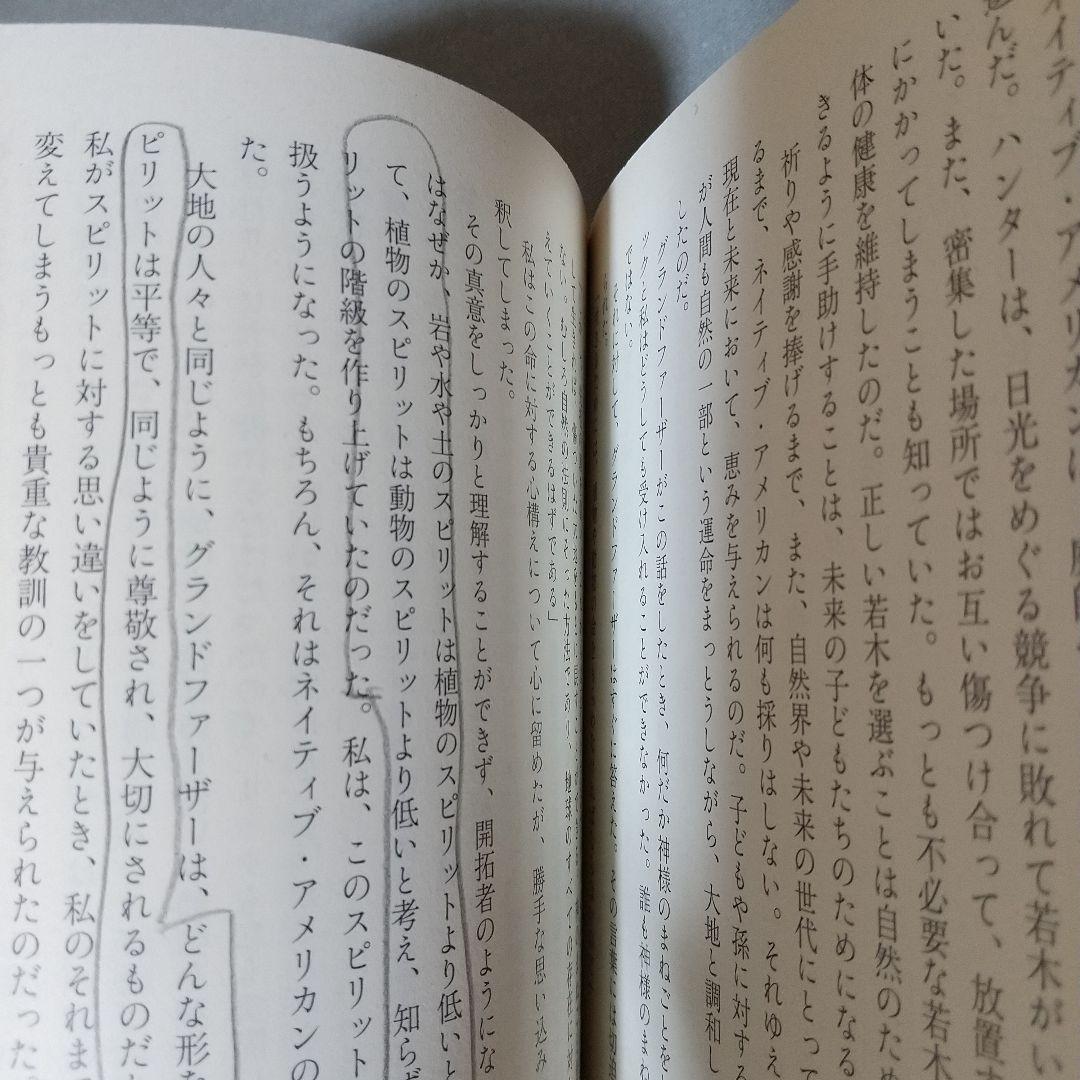 イティブ・アメリカンは、
んだ。ハンターは、日光をめぐる競争に敗れて若木がい
いた。また、密集した場所ではお互い傷つけ合って、放置
にかかってしまうことも知っていた。もっとも不必要な若木
体の健康を維持したのだ。正しい若木を選ぶことは自然のた
きるように手助けすることは、未来の子どもたちのためになる
祈りや感謝を捧げるまで、また、自然界や未来の世代にとって
るまで、ネイティブ・アメリカンは何も採りはしない。それゆえ
現在と未来において、恵みを与えられるのだ。子どもや孫に対する
が人間も自然の一部という運命をまっとうしながら、大地と調和し
したのだ。
グランドファーザーがこの話をしたとき、何だか神様のまねごとをし
ックと私はどうしても受け入れることができなかった。誰も神様のまね
ではない。
それに対して、グランドファーザーはすぐに答えた。その言葉には
ない。むしろ自然の法則にそった方法であり、地球のすべての存在に
えていくことができるはずである」
私はこの命に対する心構えについて心に留めたが、勝手な思い込み
釈してしまった。
その真意をしっかりと理解することができず、開拓者のようにな
はなぜか、岩や水や土のスピリットは植物のスピリットより低いと
て、植物のスピリットは動物のスピリットより低いと考え、知らず
リットの階級を作り上げていたのだった。私は、このスピリット
扱うようになった。もちろん、それはネイティブ・アメリカンの
た。
大地の人々と同じように、グランドファーザーは、どんな形な
ピリットは平等で、同じように尊敬され、大切にされるものだと
私がスピリットに対する思い違いをしていたとき、私のそれま
変えてしまうもっとも貴重な教訓の一つが与えられたのだった